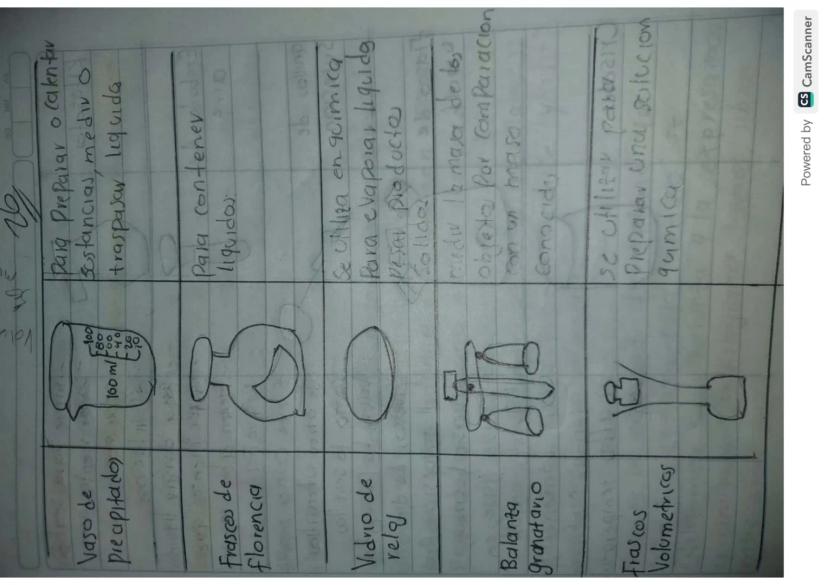 Vaso de
precipitados
100 ml
100
80
60
40
20
10
Para preparar o calentar
sustancias, medir o
traspasar liquida
Frascos de
florencia
Para contener
liquidos.
Vidrio de
reloj
Se utiliza en quimica
Para evaporar liquida
pesar productos
solidos
Balanza
granatario
medir la masa de los
objetos por comparacion
con un masa
conocida,
Frascos
Volumetricos
se utilizar para
Preparar una solucion
quimica
Powered by CS CamScanner